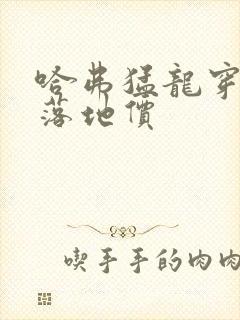 哈弗猛龍穿
落地價
喫手手的肉肉